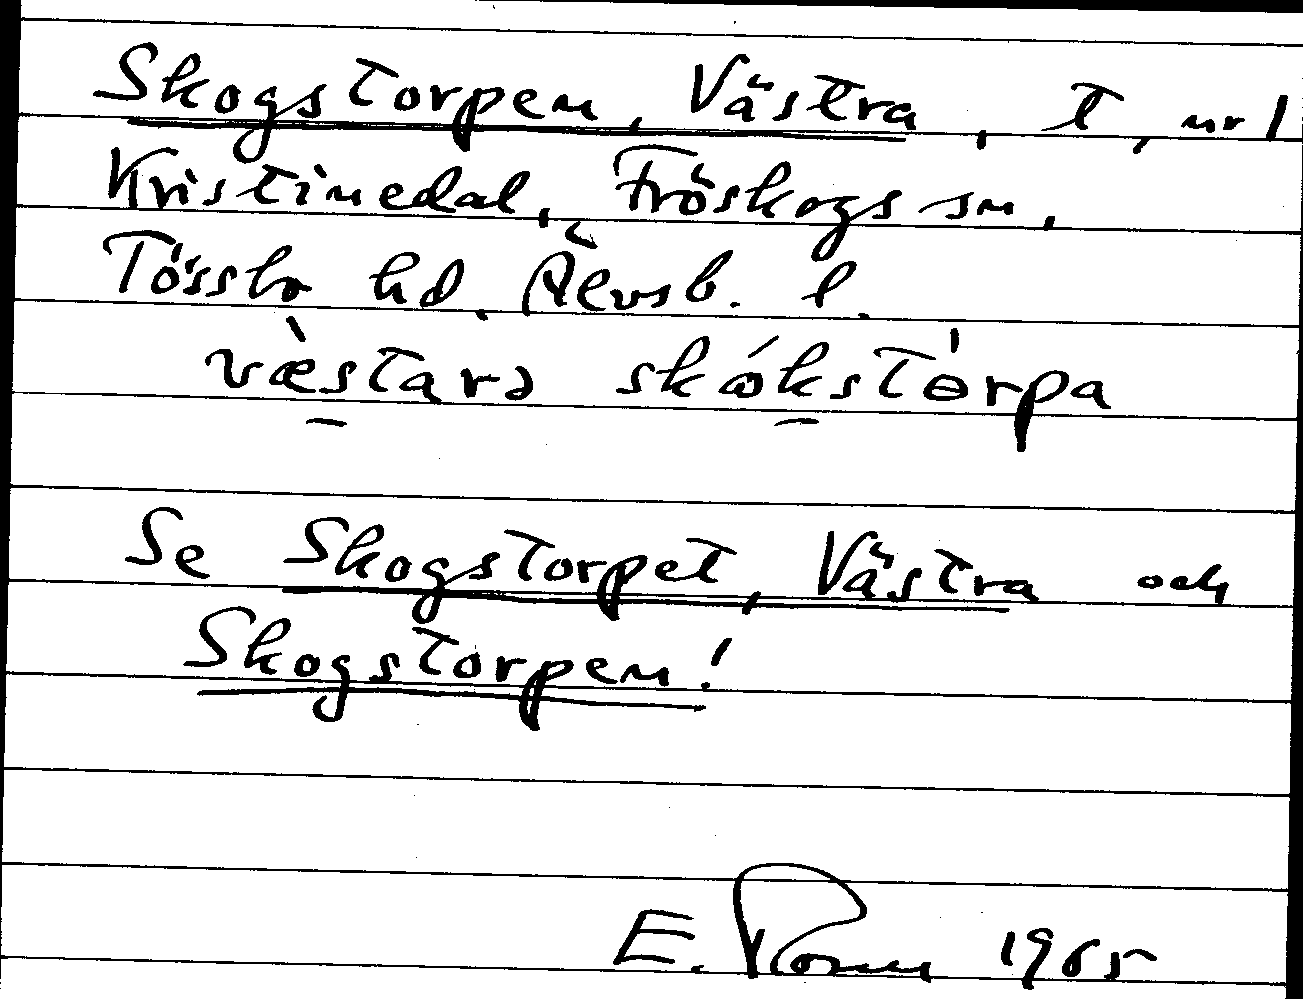 Skogstorpen, Västra, t, nr 1
Kristinedal, Fröskogs sn,
Tössbo hd. Älvsb. l.
væ̀starə skókstòrpa
Se Skogstorpet, Västra och
Skogstorpen!
E. 1965